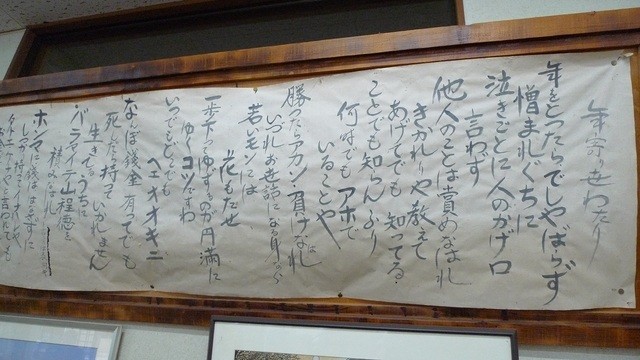 年寄りせわたり
年をとったらでしゃばらず
憎まれぐちに
泣きごとに人のかげ口
言わず
他人のことは賞めなはれ
きかれりゃ教えて
あげてでも 知ってる
ことでも知らんふり
何時でもアホで
いることや
勝ったらアカン・負けなはれ
いづれお世話になる身なら
若いモンには
花もたせ
一歩下ってゆずるのが円満に
ゆくコツですわ
いつでもどこでも
ヘェオオキニ
なんぼ銭金有ってでも
死んだら持っていかれません
生きてるうちに
バラマイテ山程徳を
積みなはれ
ホンマに銭は